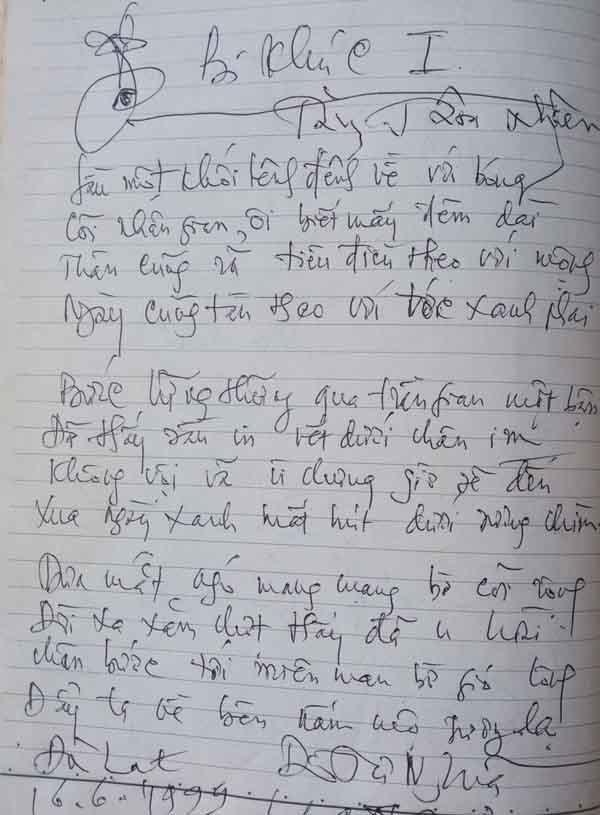 Bi Khúc I
Tùy J Tâm nhiên
Sầu một khối bềnh bồng về vũ bóng
Cõi nhân gian, ôi biết mấy đêm dài
Thân cũng rã tiêu điều theo với mộng
Ngày cũng tàn theo với tóc xanh phai
Bước lững thững qua trần gian một bận
Đã thấy sầu in vết dưới chân im
Không vội vã ừ chừng giờ sẽ đến
Xua ngày xanh mất hút dưới rừng chim
Đưa mắt ngó mang mang bờ cõi rộng
Đồi xa xăm chợt thấy đã u hoài
chân bước tới miên man bờ gió lộng
Đẩy ta về bên nấm mộ tương lai
Đà Lạt
16.6.1999